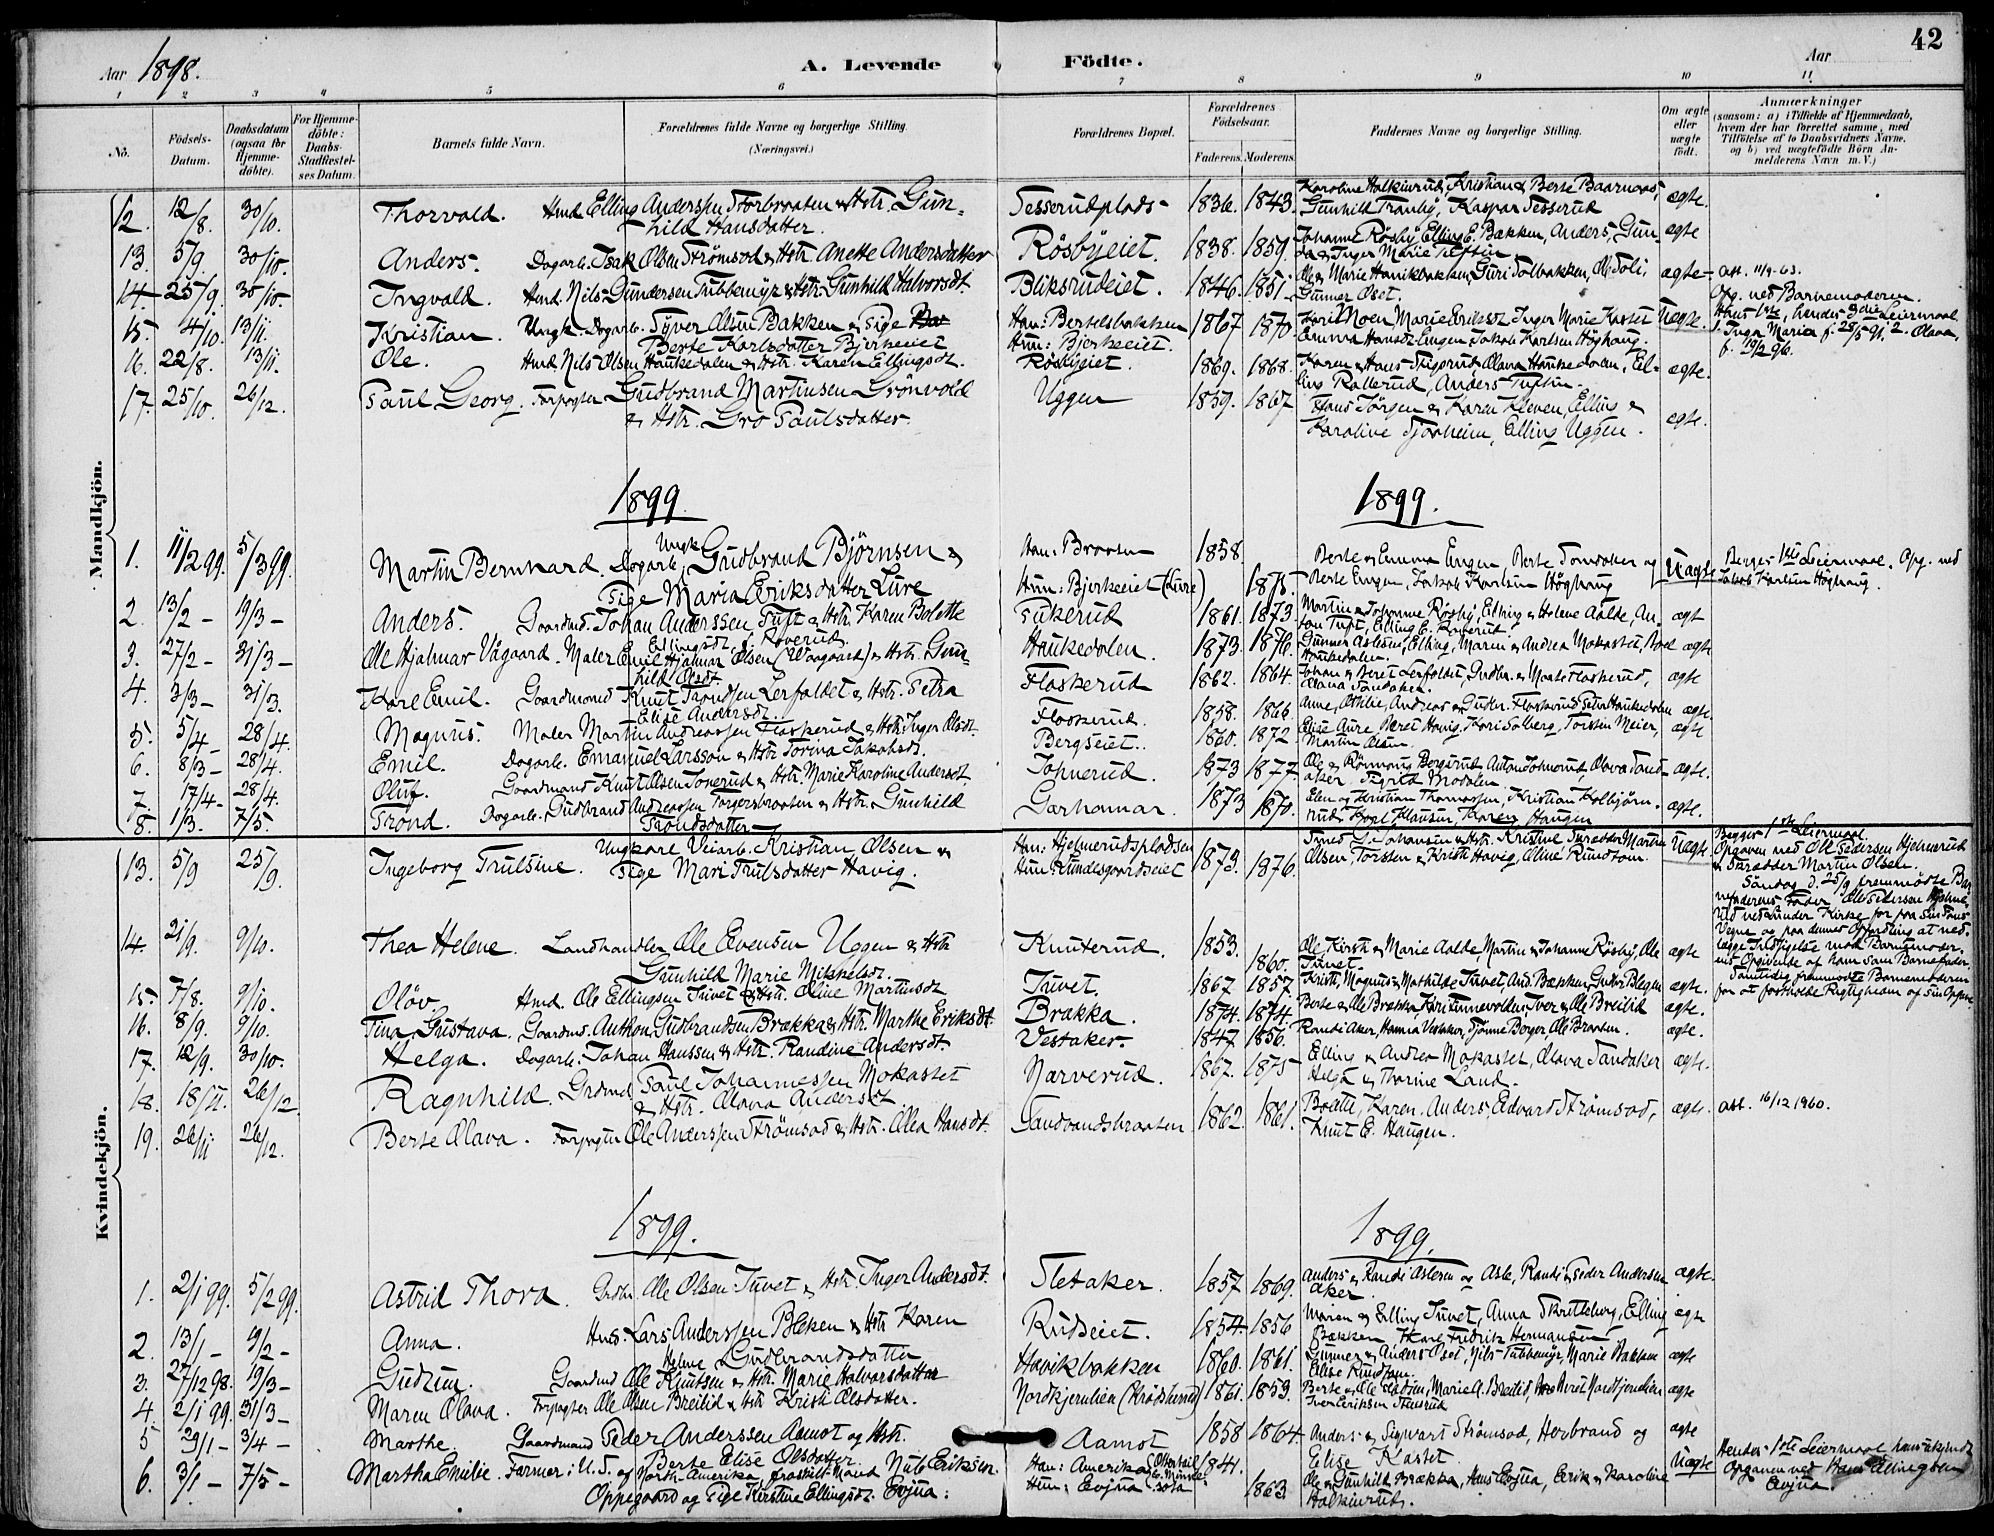 42
Aar 1898.
A. Levende Födte.
Aar
1 2 3 4 5 6 7 8 9 10 11
No.
Födsels-Datum.
Daabsdatum (ogsaa for Hjemmedöbte).
For Hjemmedöbte: Daabs-Stadfæstelses Datum.
Barnets fulde Navn.
Forældrenes fulde Navne og borgerlige Stilling. (Næringsvei.)
Forældrenes Bopæl.
Forældrenes Födselsaar.
Faderens. Moderens.
Faddernes Navne og borgerlige Stilling.
Om ægte eller uægte födt.
Anmærkninger (saasom: a) i Tilfælde af Hjemmedaab, hvem der har forrettet samme, med Tilföielse af to Daabsvidners Navne, og b) ved uægtefödte Börn Anmelderens Navn m. V.)
Mandkjön.
12. 12/8. 30/10. Thorvald. Hmd. Elling Anderssen Storbraaten & Hstr. Gunhild Hansdatter. Tesserudplads- 1836. 1843. Karoline Halkinrud, Kristian & Berte Baarnaas, Gunhild Tranby, Kaspar Tesserud ægte.
13. 5/9. 30/10. Anders. Dagarb. Isak Olsen Strømsod & Hstr. Anette Andersdatter Rösbyeiet. 1838. 1859. Johanne Røsby, Elling E. Bækken, Anders, Gunda & Inger Marie Tuftin ægte
14 25/9. 30/10. Ingvald. Hmd. Nils Gundersen Tubbemyr & Hstr. Gunhild Halvorsdt. Bliksrudeiet. 1846. 1851. Ole & Marie Havikbakken, Guri Solbakken, Ole Soli, Gunner Øset. ægte- att. 11/9-63.
15. 4/10. 13/11. Kristian. Ungk. Dagarb. Syver Olsen Bakken & Pige Berte Karlsdatter Bjerkeeiet Han: Bertelsbakken Hun: Bjerkeeiet. 1867 1870 Kari Moen, Marie Eriksdt. Inger Marie Kastet Emma Hansdt. Engen Jakob Karlsen Höghaug. Uægte. Opg. ved Barnemoderen. Hans 1ste, hendes 3die Leiermaal 1. Inga Maria f. 28/5 91. 2. Olava, f. 19/2 96.
16. 22/8. 13/11. Ole. Hmd. Nils Olsen Haukedalen & Hstr. Karen Ellingsdt. Røsbyeiet. 1869. 1868. Karen & Hans Stigsrud, Olava Haukedalen, Elling Rallerud, Anders Tuftin. ægte.
17. 25/10. 26/12. Paul Georg. Forpagter Gudbrand Martinsen Grönvold & Hstr. Gro Paulsdatter. Uggen 1859. 1867 Hans Jörgen & Karen Kleven, Elling & Karoline Fjorheim, Elling Uggen. ægte.
1899.
1899.
1. 11/2 99. 5/3 99. Martin Bernhard. Ungk. Dagarb. Gudbrand Björnsen & Pige Maria Eriksdatter Lure Han: Braaten Hun: Bjerkeeiet (Lure) 1858 1875. Berte & Emma Engen, Berte Sandaker og Berte Engen, Jakob Karlsen Höghaug Uægte Begges 1ste Leiermaal. Opg. ved Jakob Karlsen Höghaug.
2. 13/2 - 19/3 - Anders. Gaardmd. Johan Anderssen Tuft & Hstr. Karen Bolette Ellingsdt. Røverud. Fukerud 1861. 1873. Martin & Johanne Rösby, Elling & Helene Aalde, Anton Tuft, Elling E. Røverud. ægt
3. 27/2 - 31/3 - Ole Hjalmar Vågaard. Maler Emil Hjalmar Olsen (Waagaard) & Hstr. Gunhild Olsdt. Haukedalen. 1873. 1876. Gunner Aslesen, Elling, Maren & Andrea Mokastet, Haukedalen. ægte
4. 3/3 - 31/3. Karl Emil. Gaardmand Knut Trondsen Lerfaldet & Hstr. Petra Elise Andersdt. Flaskerud 1862. 1864. Johan & Beret Lerfaldet, Gudbr. & Marte Flaskerud, Olava Sandaker. ægte
5. 5/4 - 28/4. Magnus. Maler Martin Andreassen Flaskerud & Hstr. Inger Olsdt. Flaskerud. 1858. 1866 Anne, Othilie, Andreas & Gudbr. Flaskerud, Peder Haukedalen ægte.
6. 8/3 - 28/4. Emil. Dagarb. Emanuel Larsson & Hstr. Torina Jakobsdt. Bergseiet. 1860. 1872 Elise Aure, Beret Havig, Kari Solberg, Torsten Meier, Martin Olsen. ægte
7. 17/4 - 28/4. Oluf. Gaardmand Knut Olsen Tonerud & Hstr. Marie Karoline Andersdt. Tophnerud. 1873 1877 Ole & Rönnaug Bergerud, Anton Tofnerud, Olava Sandaker, Sigrid Modalen. ægte.
8. 1/3. 7/5. Trond. Dagarb. Gudbrand Andreassen Torgersbraaten & Hstr. Gunhild Trondsdatter Garhamar. 1873 1870. Elen og Kristian Thomassen, Kristian Kolbjørnrud, Karl Klausen, Karen Haugen ægte.
Kvindekjön.
13. 5/9 25/9. Ingeborg Trulsine. Ungkarl Veiarb. Kristian Olsen & Pige Mari Trulsdatter Havig. Han: Hjelmerudspladsen Hun: Rundesgaardseiet 1873. 1876. Smed G. Johansen & Hstr. Kristine, Skrædder Martin Olsen, Torsten & Kristi Havig, Oline Rundtom. Uægte Begges 1ste Leiermaal. Opgaven ved Ole Pedersen Hjelmerud & Skrædder Martin Olsen. Söndag d. 25/9 fremmödte Barnefaderens Fader Ole Pedersen Hjelmerud ved Lunder Kirke for paa sin Søns Vegne og paa dennes Opfordring at nedlægge Indsigelse mod Barnemoderens Opgivende af ham som Barnefader. Samtidig fremmödte Barnemoderen for at fastholde Rigtigheden af sin Opgave
14. 21/9. 9/10. Thea Helene. Landhandler Ole Evensen Uggen & Hstr. Gunhild Marie Mikkelsdt. Knuterud. 1853. 1860. Ole, Kirsti & Marie Aalde, Martin & Johanne Rösby, Ole Tuvet. ægte
15. 7/8. 9/10. Oløv. Hmd. Ole Ellingsen Tuvet & Hstr. Oline Martinsdt. Tuvet. 1867 1857 Kristi, Magnus & Mathilde Tuvet, And. Bækken, Guttor Blegen ægte.
16. 8/9. 9/10. Tina Gustava. Gaardmd. Anthon Gudbrandsen Brækka & Hstr. Marthe Eriksdt. Brakka. 1874. 1874. Berte & Ole Brækka, Kari Finnevolden, Iver & Ole Breilid ægte.
17. 12/9. 30/10. Helga. Dagarb. Johan Hanssen & Hstr. Randine Andersdt. Vestaker. 1847 1856. Randi Aker, Hanna Vestaker, Tjønne Borger, Ole Braaten. ægte.
18. 18/11. 26/12. Ragnhild. Grdmd. Paul Johannessen Mokastet & Hstr. Olava Andersdt. Narverud. 1867. 1875 Elling & Andrea Mokastet, Olava Sandaker Helga & Thorine Land. ægte.
19. 26/11 26/12. Berte Olava. Forpagter Ole Anderssen Strömsod & Hstr. Olea Hansdt. Sandvandsbraaten 1862. 1861. Bolette, Karen, Anders, Edvard Strømsod, Knut E. Haugen. ægte. att. 16/12 1960.
1899.
1899.
1. 2/1 99. 5/2 99. Astrid Thora. Grdbr. Ole Olsen Tuvet & Hstr. Inger Andersdt. Sletaker. 1857 1869. Anders & Randi Aslesen og Asle, Randi & Peder Andersen Aker. ægte.
2. 13/1 - 9/2 - Anna. Hmd. Lars Anderssen Bleken & Hstr. Karen Gudbrandsdatter Rudseiet. 1854. 1856 Maren og Elling Tuvet, Anna Skretteberg, Elling Bækken, Karl Fredrik Hermansen ægte
3. 27/12 98. 19/3 - Gudrun. Gaardmd. Ole Knutsen & Hstr. Helene Marie Halvorsdatter Havikbakken 1860. 1861. Gunner & Anders Øset, Nils Tubbemyr, Marie Bakken Elise Rundtom. ægte
4. 2/1 99. 31/3 - Maren Olava. Forpagter Ole Olsen Breilid & Hstr. Kristi Olsdatter. Nordkjernlien (Krödsherred) 1861. 1853. Berte & Ole Elsrud, Marie A. Breilid, Beret Nordkjernlien Iver Eriksen Stensrud ægte
5 29/1 - 3/4 - Marthe. Gaardmand Peder Anderssen Aamot og Hstr. Berte Elise Olsdatter Aamot 1858 1864. Anders & Sigvart Strømsod, Herbrand og Elise Kastet. ægte
6. 3/1 - 7/5 - Martha Emilie. Farmer i U.S. og North-Amerika, fraskilt Mand Nub Eriksen Oppegaard og Pige Kirstine Ellingsdt. Evjua. Han: Amerika (Ottertail C. Minnesota Hun: Evjua 1841. 1863. Ole & Gunhild Brækka, Hans Evjua, Eirik & Karoline Halkinrud. Uægte Hendes 1ste Leiermaal, hans ukjendt Opgaven ved Hans Ellingsen Evjua.